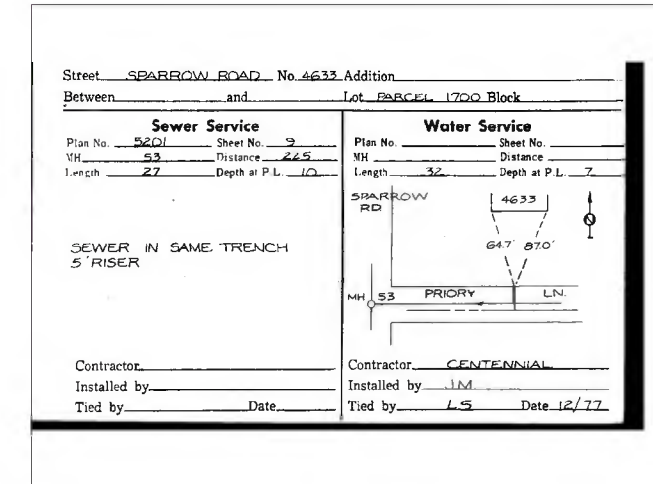 Street SPARROW ROAD No. 4633 Addition
Between and Lot PARCEL 1700 Block
Sewer Service
Plan No. 5201 Sheet No. 9
MH 53 Distance 265
Length 27 Depth at P.L. 10
SEWER IN SAME TRENCH
5' RISER
Contractor
Installed by
Tied by Date
Water Service
Plan No. Sheet No.
MH Distance
Length 32 Depth at P.L. 7
SPARROW
RD
4633
N
64.7' 87.0'
MH 53 PRIORY LN.
Contractor CENTENNIAL
Installed by J.M.
Tied by L.S Date 12/77